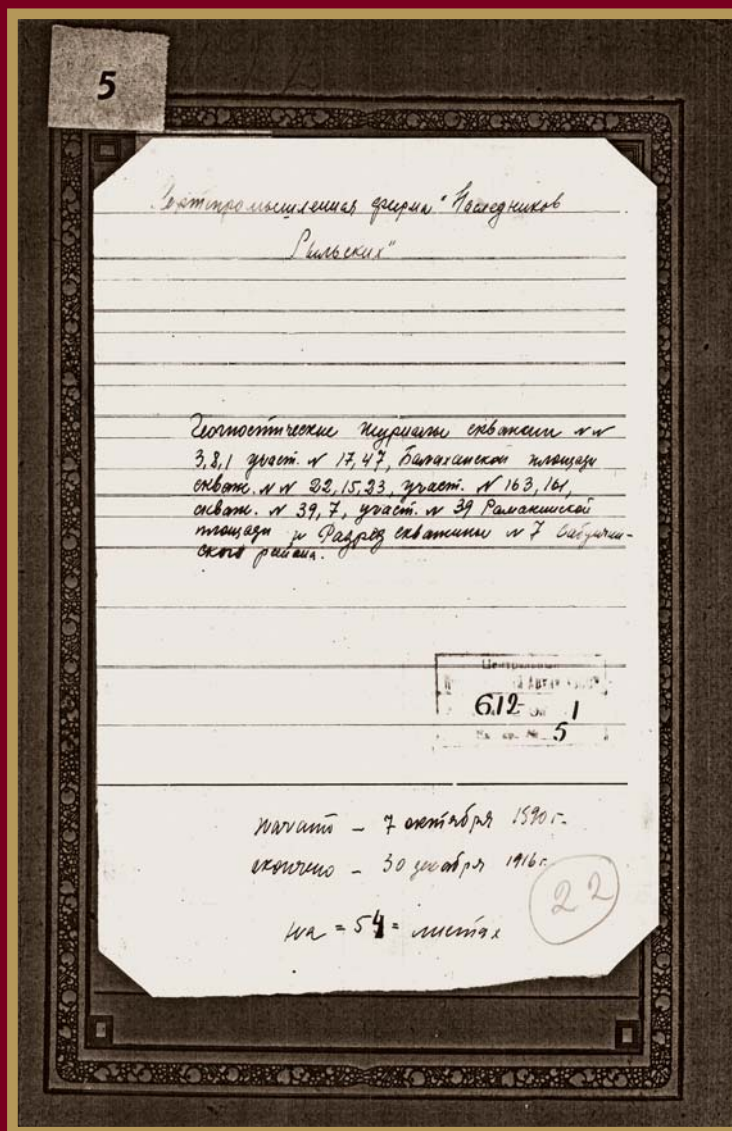 5
Нефтепромышленная фирма "Наследников
Рыльских"
Геогностические журналы скважин № №
3,8,1 участ. № 17,47, Балаханской площади
скваж. № № 22,15,23, участ. № 163, 161,
скваж. № 39,7, участ. № 39 Раманинской
площади и Разрез скважины № 7 Сабунчин-
ского района.
Центральный
612 1
Ед. хр. № 5
начато – 7 октября 1890 г.
окончено – 30 декабря 1916 г.
22
на = 54 = листах